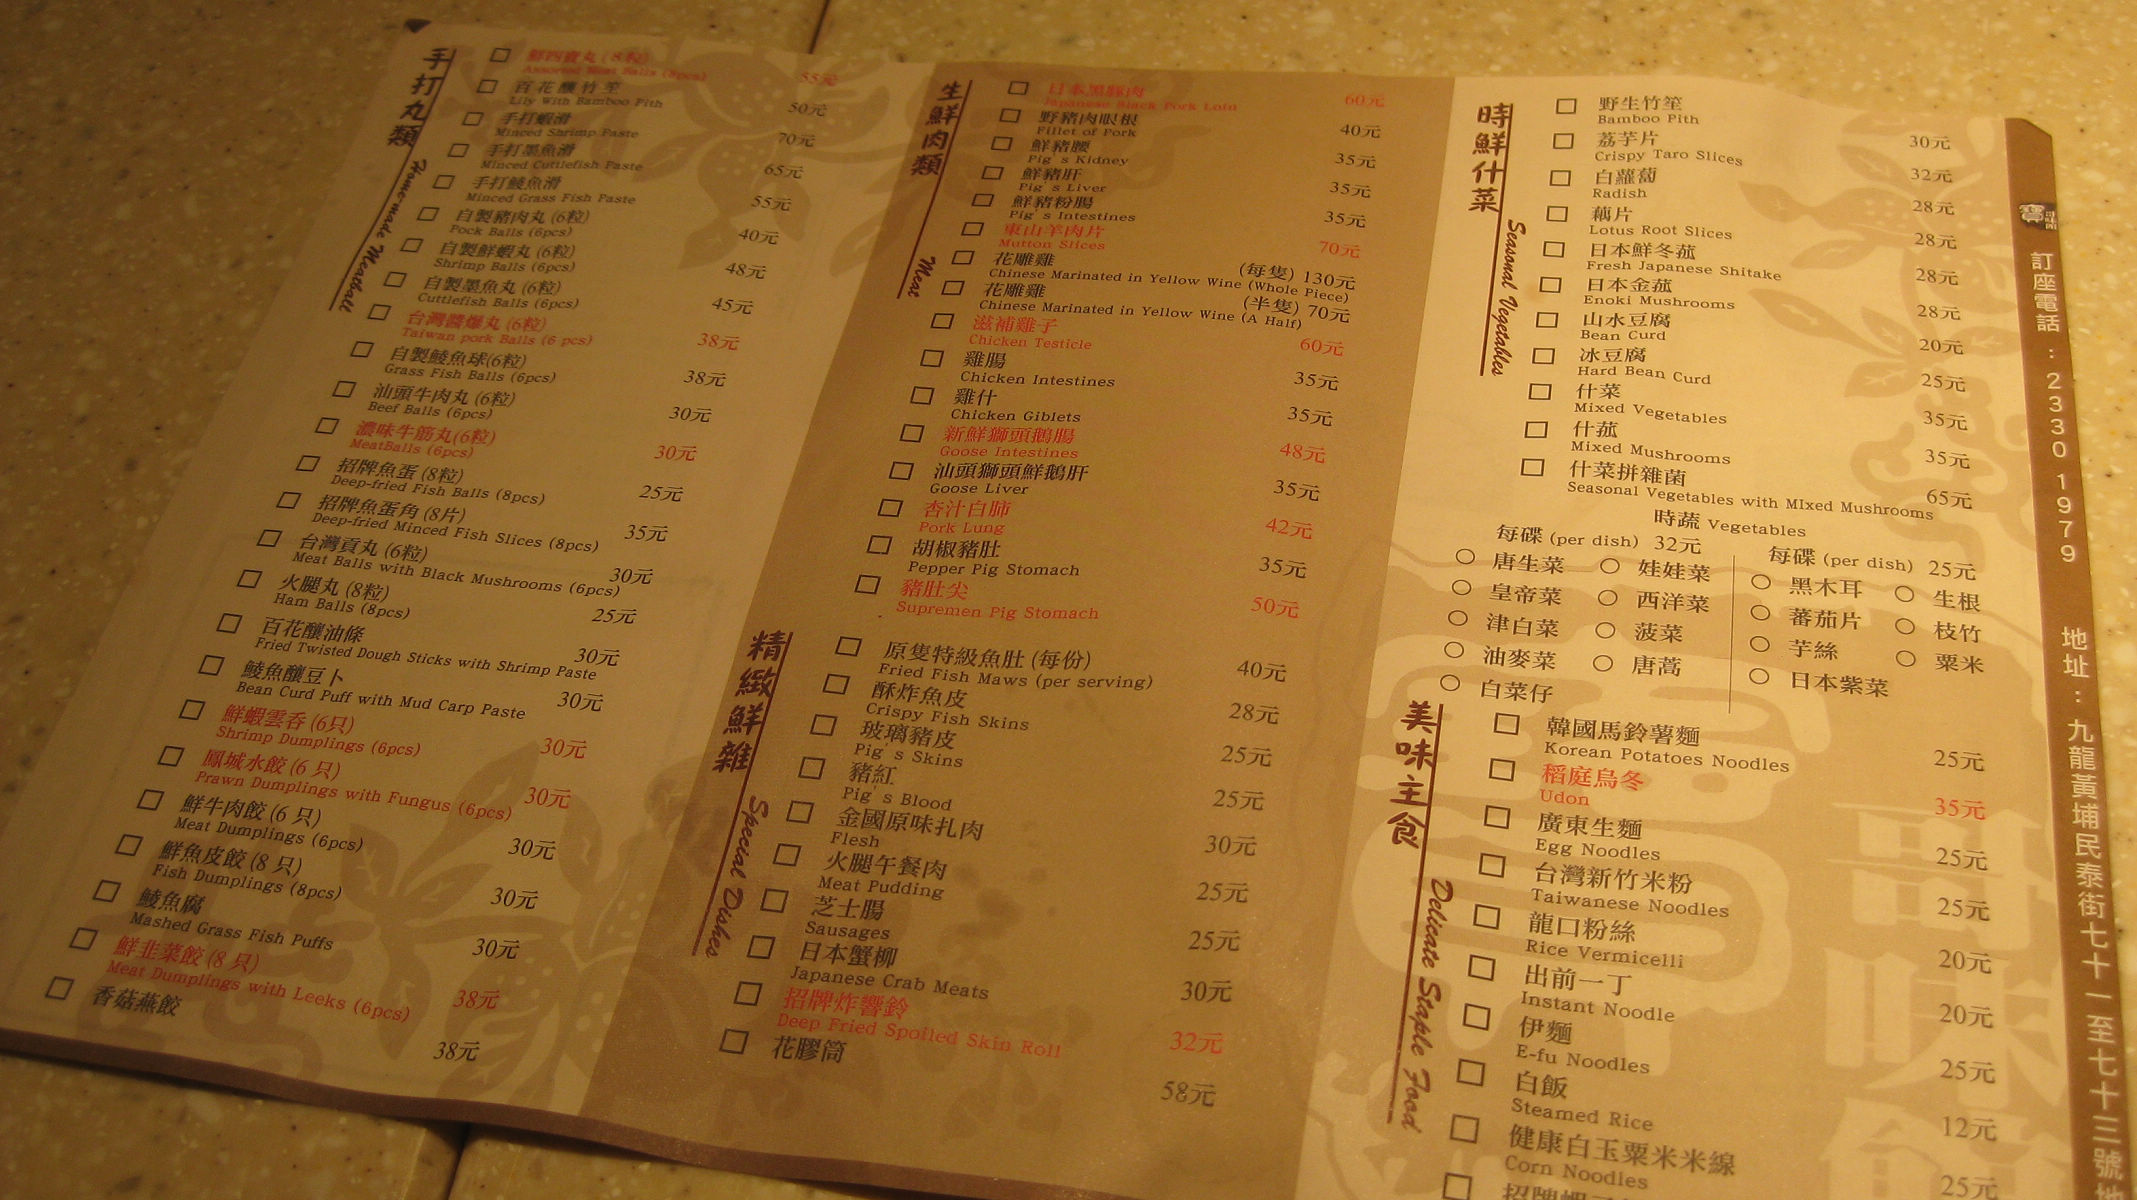 手打丸類
Home-made Meatball
鮮四寶丸 (8粒)
Assorted Meat Balls (8pcs) 55元
百花釀竹笙
Lily With Bamboo Pith 50元
手打蝦滑
Minced Shrimp Paste 70元
手打墨魚滑
Minced Cuttlefish Paste 65元
手打鯪魚滑
Minced Grass Fish Paste 55元
自製豬肉丸 (6粒)
Pock Balls (6pcs) 40元
自製鮮蝦丸 (6粒)
Shrimp Balls (6pcs) 48元
自製墨魚丸 (6粒)
Cuttlefish Balls (6pcs) 45元
台灣醬爆丸 (6粒)
Taiwan pork Balls (6 pcs) 38元
自製鯪魚球(6粒)
Grass Fish Balls (6pcs) 38元
汕頭牛肉丸 (6粒)
Beef Balls (6pcs) 30元
濃味牛筋丸(6粒)
MeatBalls (6pcs) 30元
招牌魚蛋 (8粒)
Deep-fried Fish Balls (8pcs) 25元
招牌魚蛋角 (8片)
Deep-fried Minced Fish Slices (8pcs) 35元
台灣貢丸 (6粒)
Meat Balls with Black Mushrooms (6pcs) 30元
火腿丸 (8粒)
Ham Balls (8pcs) 25元
百花釀油條
Fried Twisted Dough Sticks with Shrimp Paste 30元
鯪魚釀豆卜
Bean Curd Puff with Mud Carp Paste 30元
鮮蝦雲吞 (6只)
Shrimp Dumplings (6pcs) 30元
鳳城水餃 (6 只)
Prawn Dumplings with Fungus (6pcs) 30元
鮮牛肉餃 (6 只)
Meat Dumplings (6pcs) 30元
鮮魚皮餃 (8 只)
Fish Dumplings (8pcs) 30元
鯪魚腐
Mashed Grass Fish Puffs 30元
鮮韭菜餃 (8 只)
Meat Dumplings with Leeks (6pcs) 38元
香菇燕餃 38元
生鮮肉類
Meat
日本黑豚肉
Japanese Black Pork Loin 60元
野豬肉眼根
Fillet of Pork 40元
鮮豬腰
Pig's Kidney 35元
鮮豬肝
Pig's Liver 35元
鮮豬粉腸
Pig's Intestines 35元
東山羊肉片
Mutton Slices 70元
花雕雞 (每隻) 130元
Chinese Marinated in Yellow Wine (Whole Piece)
花雕雞 (半隻) 70元
Chinese Marinated in Yellow Wine (A Half)
滋補雞子
Chicken Testicle 60元
雞腸
Chicken Intestines 35元
雞什
Chicken Giblets 35元
新鮮獅頭鵝腸
Goose Intestines 48元
汕頭獅頭鮮鵝肝
Goose Liver 35元
杏汁白肺
Pork Lung 42元
胡椒豬肚
Pepper Pig Stomach 35元
豬肚尖
Supremen Pig Stomach 50元
精緻鮮雜
Special Dishes
原隻特級魚肚 (每份)
Fried Fish Maws (per serving) 40元
酥炸魚皮
Crispy Fish Skins 28元
玻璃豬皮
Pig's Skins 25元
豬紅
Pig's Blood 25元
金國原味扎肉
Flesh 30元
火腿午餐肉
Meat Pudding 25元
芝士腸
Sausages 25元
日本蟹柳
Japanese Crab Meats 30元
招牌炸響鈴
Deep Fried Spoiled Skin Roll 32元
花膠筒 58元
時鮮什菜
Seasonal Vegetables
野生竹笙
Bamboo Pith 30元
荔芋片
Crispy Taro Slices 32元
白蘿蔔
Radish 28元
藕片
Lotus Root Slices 28元
日本鮮冬菰
Fresh Japanese Shitake 28元
日本金菰
Enoki Mushrooms 28元
山水豆腐
Bean Curd 20元
冰豆腐
Hard Bean Curd 25元
什菜
Mixed Vegetables 35元
什菰
Mixed Mushrooms 35元
什菜拼雜菌
Seasonal Vegetables with MIxed Mushrooms 65元
時蔬 Vegetables
每碟 (per dish) 32元
唐生菜 娃娃菜
皇帝菜 西洋菜
津白菜 菠菜
油麥菜 唐蒿
白菜仔
每碟 (per dish) 25元
黑木耳 生根
蕃茄片 枝竹
芋絲 粟米
日本紫菜
美味主食
Delicate Staple Food
韓國馬鈴薯麵
Korean Potatoes Noodles 25元
稻庭烏冬
Udon 35元
廣東生麵
Egg Noodles 25元
台灣新竹米粉
Taiwanese Noodles 25元
龍口粉絲
Rice Vermicelli 20元
出前一丁
Instant Noodle 20元
伊麵
E-fu Noodles 25元
白飯
Steamed Rice 12元
健康白玉粟米米線
Corn Noodles 25元
招牌蝦
訂座電話：2330 1979 地址：九龍黃埔民泰街七十一至七十三號地